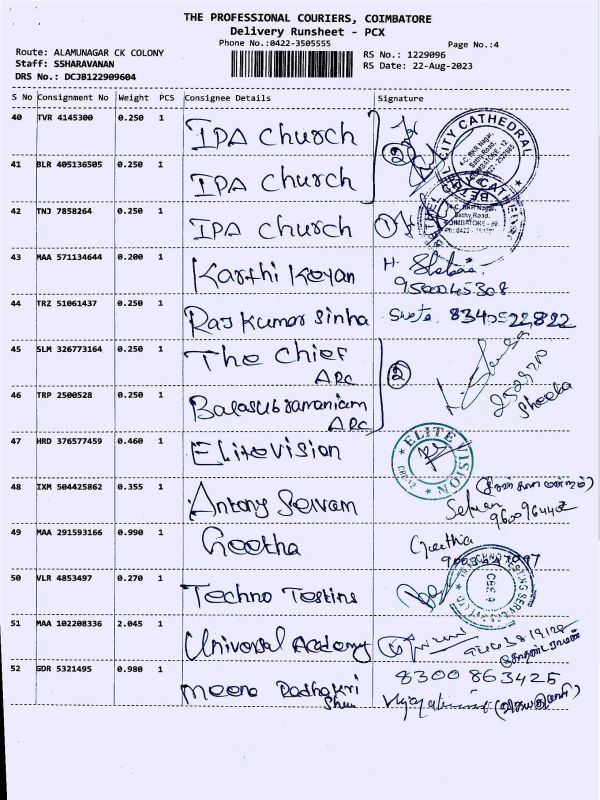 THE PROFESSIONAL COURIERS, COIMBATORE
Delivery Runsheet - PCX
Phone No.:0422-3505555
Page No.:4
Route: ALAMUNAGAR CK COLONY
RS No.: 1229096
Staff: SSHARAVANAN
RS Date: 22-Aug-2023
DRS No.: DCJB122909604
S No Consignment No Weight PCS Consignee Details Signature
40 TVR 4145300 0.250 1 IPA Church
41 BLR 405136505 0.250 1 IPA Church 2
CITY CATHEDRAL
42 TNJ 7858264 0.250 1 IPA Church 1
43 MAA 571134644 0.200 1 Karthi Keyan H.
9500045308
44 TRZ 51061437 0.250 1 Raj Kumar Sinha
45 SLM 326773164 0.250 1 The Chief
ARC
2
46 TRP 2500528 0.250 1 Balasubramaniam
ARC
Sheeba
47 HRD 376577459 0.460 1 Elitevision
ELITE VISION
48 IXM 504425862 0.355 1 Antony Selvam
Selvan
49 MAA 291593166 0.990 1 Geetha Geetha
50 VLR 4853497 0.270 1 Techno Testins
51 MAA 102208336 2.045 1 Universal Academy
52 GDR 5321495 0.980 1 Meena Radhakri
Shna
8300863425